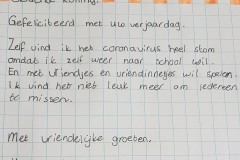 Gefeliciteerd met uw verjaardag.
Zelf vind ik het coronavirus heel stom
omdat ik zelf weer naar school wil.
En met vriendjes en vriendinnetjes wil spelen.
Ik vind het niet leuk meer om iedereen
te missen.
Met vriendelijke groeten.